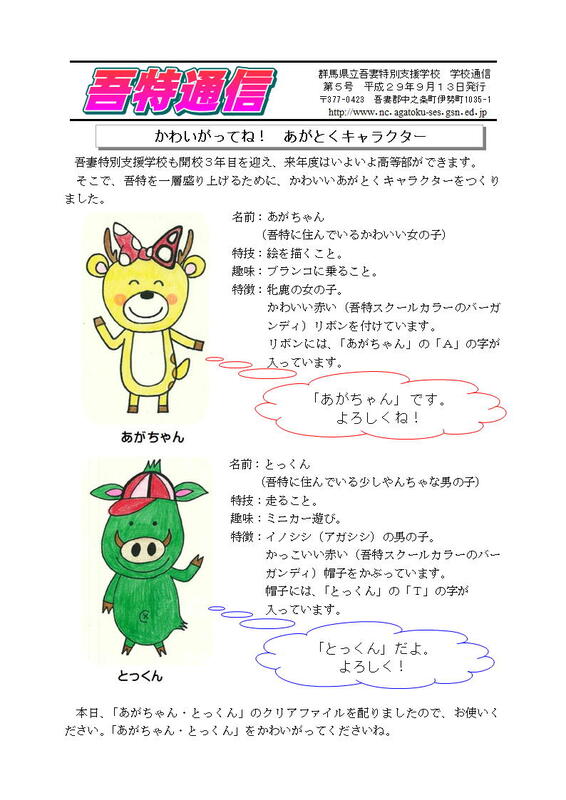 吾特通信
群馬県立吾妻特別支援学校　学校通信
第５号　平成２９年９月１３日発行
〒377-0423　吾妻郡中之条町伊勢町1035-1
http://www.nc.agatoku-ses.gsn.ed.jp
かわいがってね！　あがとくキャラクター
吾妻特別支援学校も開校３年目を迎え、来年度はいよいよ高等部ができます。
そこで、吾特を一層盛り上げるために、かわいいあがとくキャラクターをつくり
ました。
名前：あがちゃん
（吾特に住んでいるかわいい女の子）
特技：絵を描くこと。
趣味：ブランコに乗ること。
特徴：牝鹿の女の子。
かわいい赤い（吾特スクールカラーのバーガ
ンディ）リボンを付けています。
リボンには、「あがちゃん」の「Ａ」の字が
入っています。
「あがちゃん」です。
よろしくね！
あがちゃん
名前：とっくん
（吾特に住んでいる少しやんちゃな男の子）
特技：走ること。
趣味：ミニカー遊び。
特徴：イノシシ（アガシシ）の男の子。
かっこいい赤い（吾特スクールカラーのバー
ガンディ）帽子をかぶっています。
帽子には、「とっくん」の「Ｔ」の字が
入っています。
「とっくん」だよ。
よろしく！
とっくん
本日、「あがちゃん・とっくん」のクリアファイルを配りましたので、お使いく
ださい。「あがちゃん・とっくん」をかわいがってくださいね。